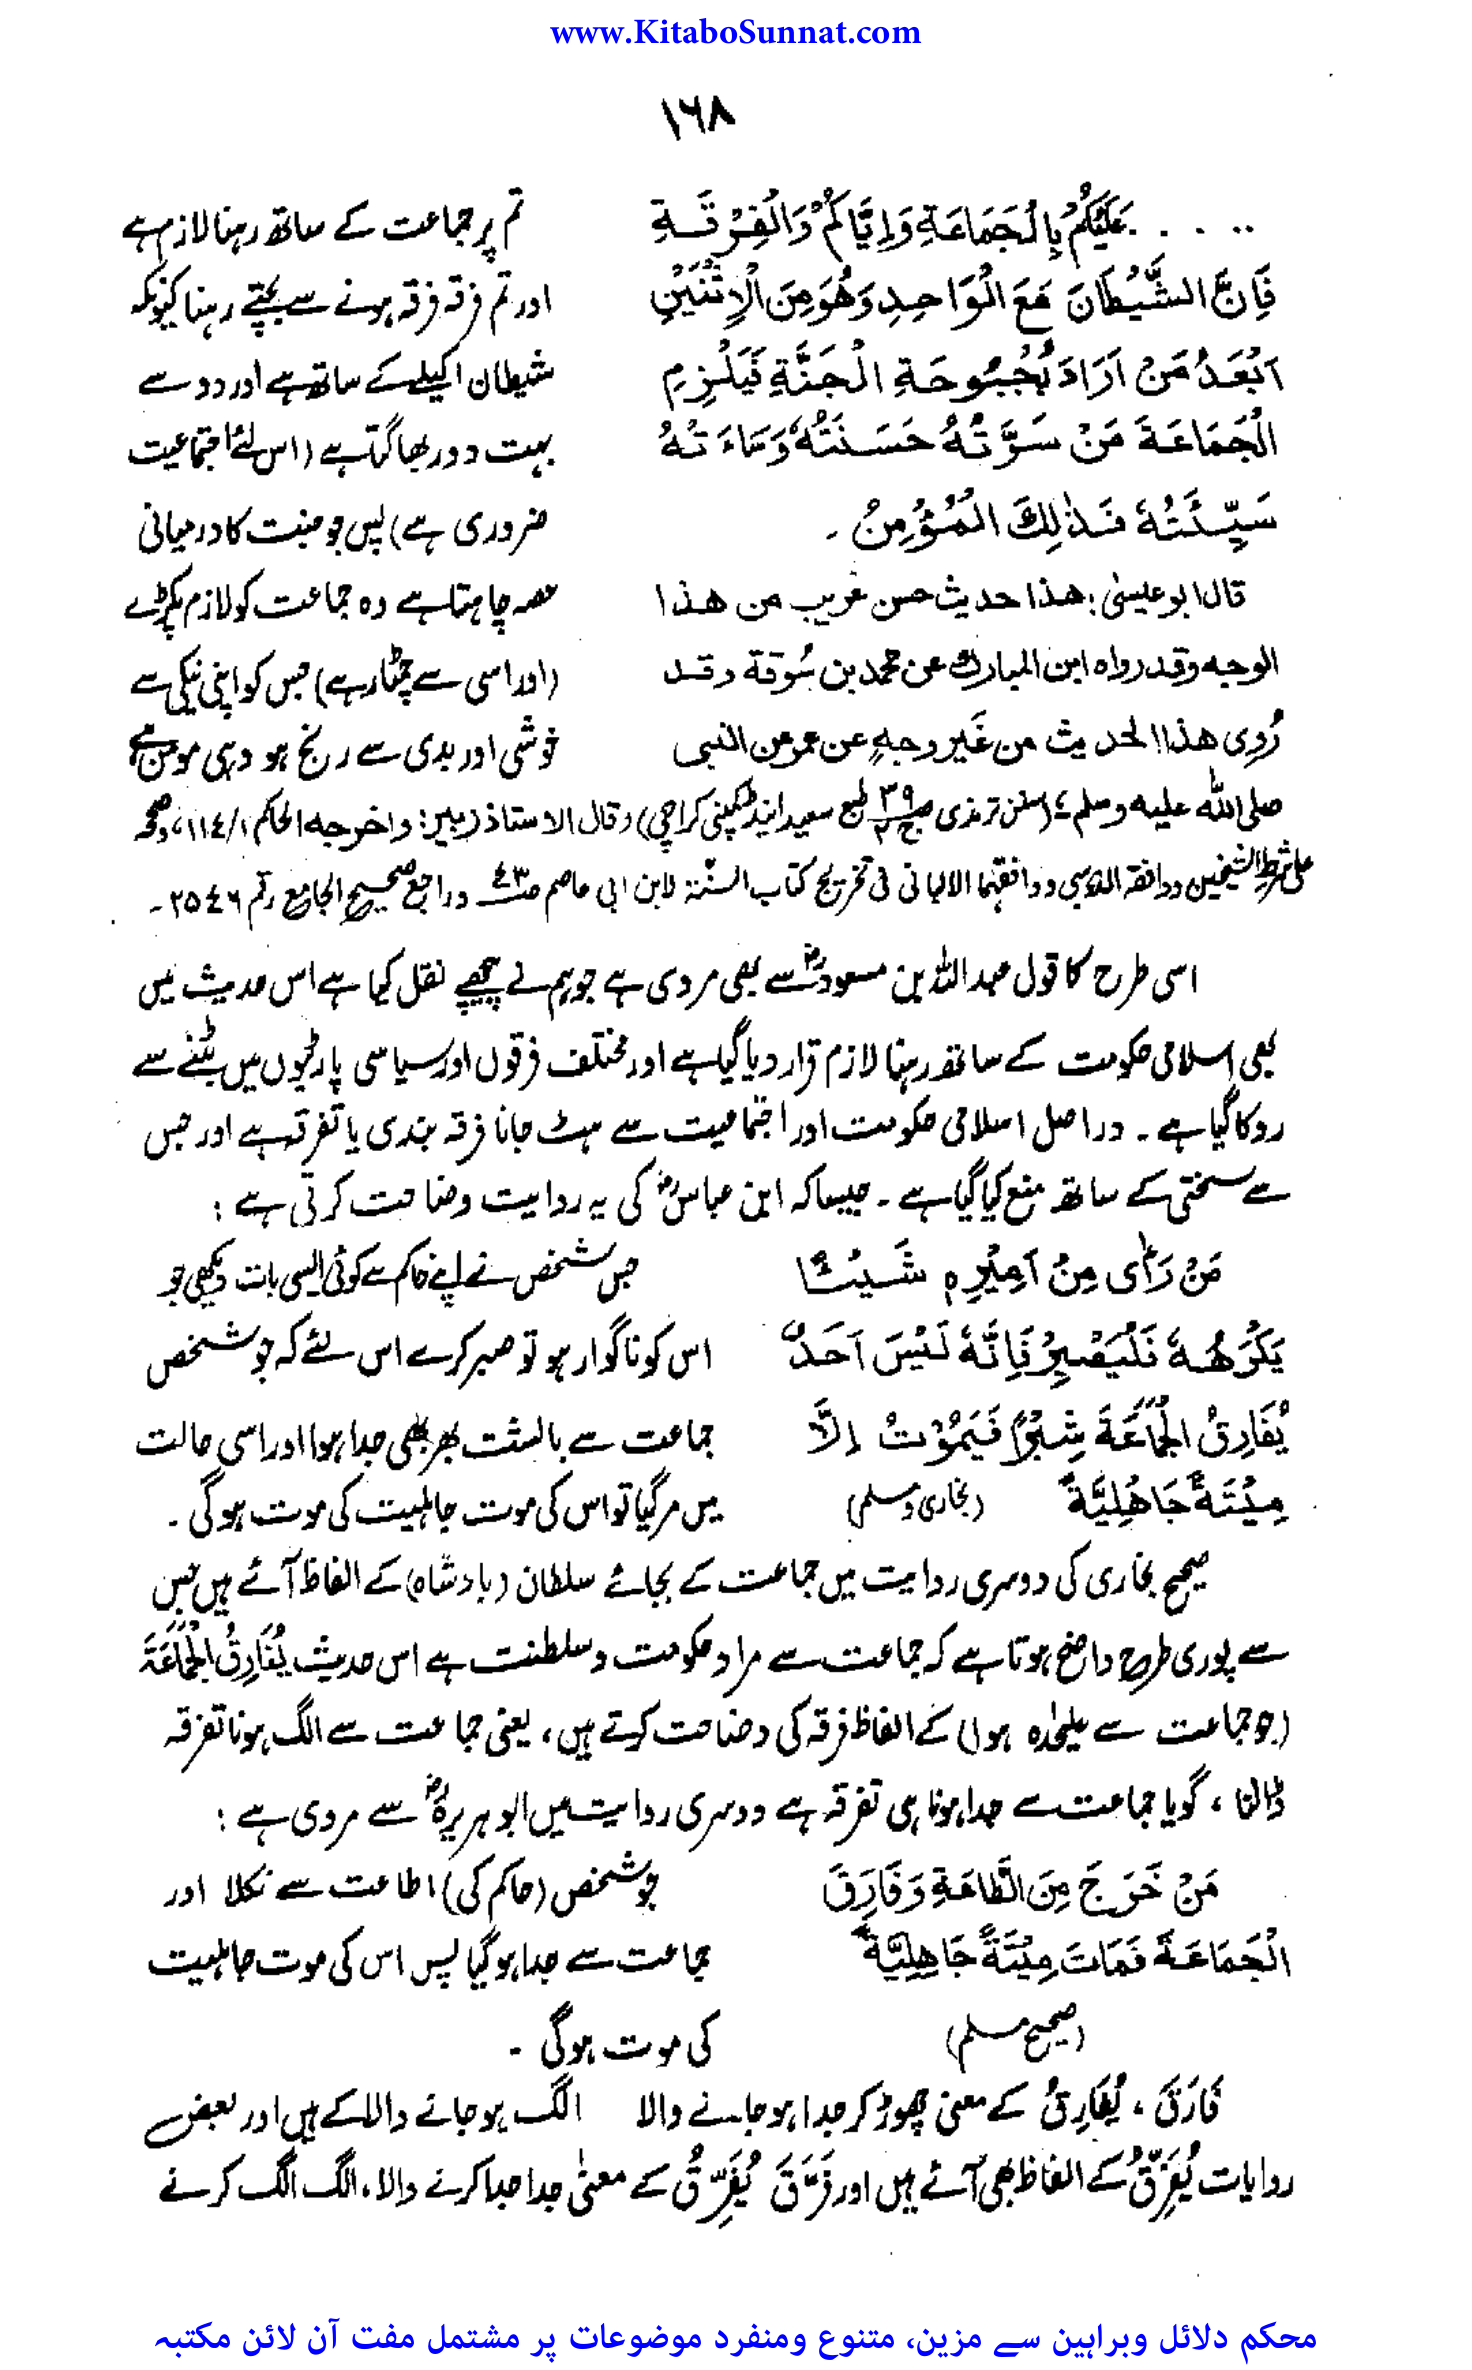 www.KitaboSunnat.com
۱۶۸
..... عَلَيْكُمْ بِالْجَمَاعَةِ وَاِيَّاكُمْ وَالْفِرْقَةِ
فَاِنَّ الشَّيْطَانَ مَعَ الْوَاحِدِ وَهُوَ مِنَ الْاِثْنَيْنِ
اَبْعَدُ مَنْ اَرَادَ بُحْبُوحَةِ الْجَنَّةِ فَيَلْزِمِ
الْجَمَاعَةَ مَنْ سَرَّتْهُ حَسَنَتُهُ وَسَاءَتْهُ
سَيِّئَتُهُ فَذٰلِكَ الْمُؤْمِنُ ۔
قال ابو عيسىٰ: هذا حديث حسن غريب من هذا
الوجه وقد رواه ابن المبارك عن محمد بن سُوقة وقد
رُوِى هذا الحديث من غَيرِ وجهٍ عن عمر عن النبى
تم پر جماعت کے ساتھ رہنا لازم ہے
اور تم فرقہ فرقہ ہونے سے بچتے رہنا کیونکہ
شیطان اکیلے کے ساتھ ہے اور دو سے
بہت دور بھاگتا ہے (اس لئے اجتماعیت
ضروری ہے) پس جو جنت کا درمیانی
حصہ چاہتا ہے وہ جماعت کو لازم پکڑے
(اور اسی سے چمٹا رہے) جس کو اپنی نیکی سے
خوشی اور بدی سے رنج ہو وہی مومن ہے
صلى الله عليه وسلم (سنن ترمذی ص ۳۹ ج ۲ طبع سعید اینڈ کمپنی کراچی) وقال الاستاذ زبیر: واخرجه الحاکم ۱/۱۱٤، وصححه
على شرط الشيخين ووافقه الذهبى ووافقهما الالبانى فى تخريج كتاب السنّة لابن ابى عاصم ص ٤٣ وراجع صحيح الجامع رقم ٢٥٤٦ ۔
اسی طرح کا قول عبداللہ بن مسعودؓ سے بھی مروی ہے جو ہم نے پیچھے نقل کیا ہے اس حدیث میں
بھی اسلامی حکومت کے ساتھ رہنا لازم قرار دیا گیا ہے اور مختلف فرقوں اور سیاسی پارٹیوں میں بٹنے سے
روکا گیا ہے ۔ دراصل اسلامی حکومت اور اجتماعیت سے ہٹ جانا فرقہ بندی یا تفرقہ ہے اور جس
سے سختی کے ساتھ منع کیا گیا ہے ۔ جیسا کہ ابن عباسؓ کی یہ روایت وضاحت کرتی ہے :
مَنْ رَاٰى مِنْ اَمِيْرِهٖ شَيْئًا
يَكْرَهُهٗ فَلْيَصْبِرْ فَاِنَّهٗ لَيْسَ اَحَدٌ
يُفَارِقُ الْجَمَاعَةَ شِبْرًا فَيَمُوْتُ اِلَّا
مِيْتَةً جَاهِلِيَّةً (بخاری و مسلم)
جس شخص نے اپنے حاکم سے کوئی ایسی بات دیکھی جو
اس کو ناگوار ہو تو صبر کرے اس لئے کہ جو شخص
جماعت سے بالشت بھر بھی جدا ہوا اور اسی حالت
میں مر گیا تو اس کی موت جاہلیت کی موت ہو گی ۔
صحیح بخاری کی دوسری روایت میں جماعت کے بجائے سلطان (بادشاہ) کے الفاظ آئے ہیں جس
سے پوری طرح واضح ہوتا ہے کہ جماعت سے مراد حکومت و سلطنت ہے اس حدیث يُفَارِقُ الْجَمَاعَةَ
(جو جماعت سے علیحدہ ہوا) کے الفاظ فرقہ کی وضاحت کرتے ہیں، یعنی جماعت سے الگ ہونا تفرقہ
ڈالنا ، گویا جماعت سے جدا ہونا ہی تفرقہ ہے دوسری روایت میں ابو ہریرہؓ سے مروی ہے :
مَنْ خَرَجَ مِنَ الطَّاعَةِ وَفَارَقَ
الْجَمَاعَةَ فَمَاتَ مِيْتَةً جَاهِلِيَّةً
(صحیح مسلم)
جو شخص (حاکم کی) اطاعت سے نکلا اور
جماعت سے جدا ہو گیا پس اس کی موت جاہلیت
کی موت ہو گی ۔
فَارَقَ ، يُفَارِقُ کے معنی چھوڑ کر جدا ہو جانے والا الگ ہو جانے والا کے ہیں اور بعض
روایات يُفَرِّقُ کے الفاظ بھی آئے ہیں اور فَرَّقَ يُفَرِّقُ کے معنیٰ جدا جدا کرنے والا، الگ الگ کرنے
محکم دلائل وبراہین سے مزین، متنوع ومنفرد موضوعات پر مشتمل مفت آن لائن مکتبہ